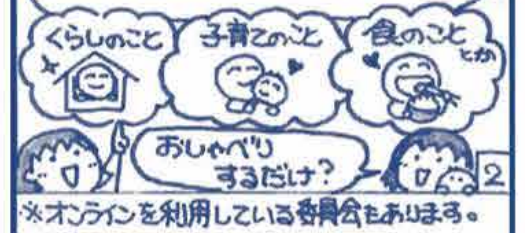 くらしのこと
子育てのこと
食のこと
とか
おしゃべり
するだけ？
2
※オンラインを利用している委員会もあります。